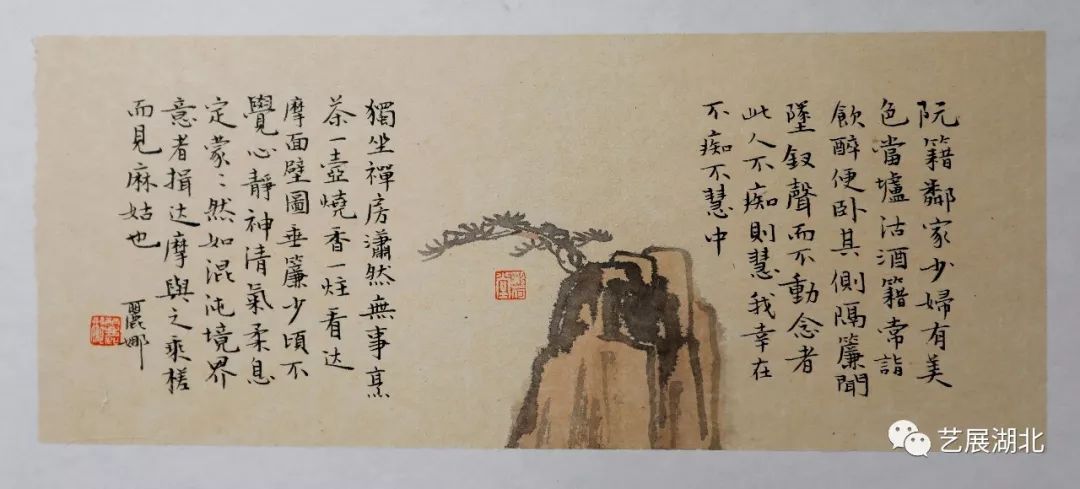 阮籍鄰家少婦有美
色當壚沽酒籍常詣
飲醉便卧其側隔簾聞
墜釵聲而不動念者
此人不痴則慧我幸在
不痴不慧中
獨坐禪房瀟然無事烹
茶一壺燒香一炷看达
摩面壁圖垂簾少頃不
覺心靜神清氣柔息
定蒙〻然如混沌境界
意者揖达摩與之乘槎
而見麻姑也
麗娜
艺展湖北